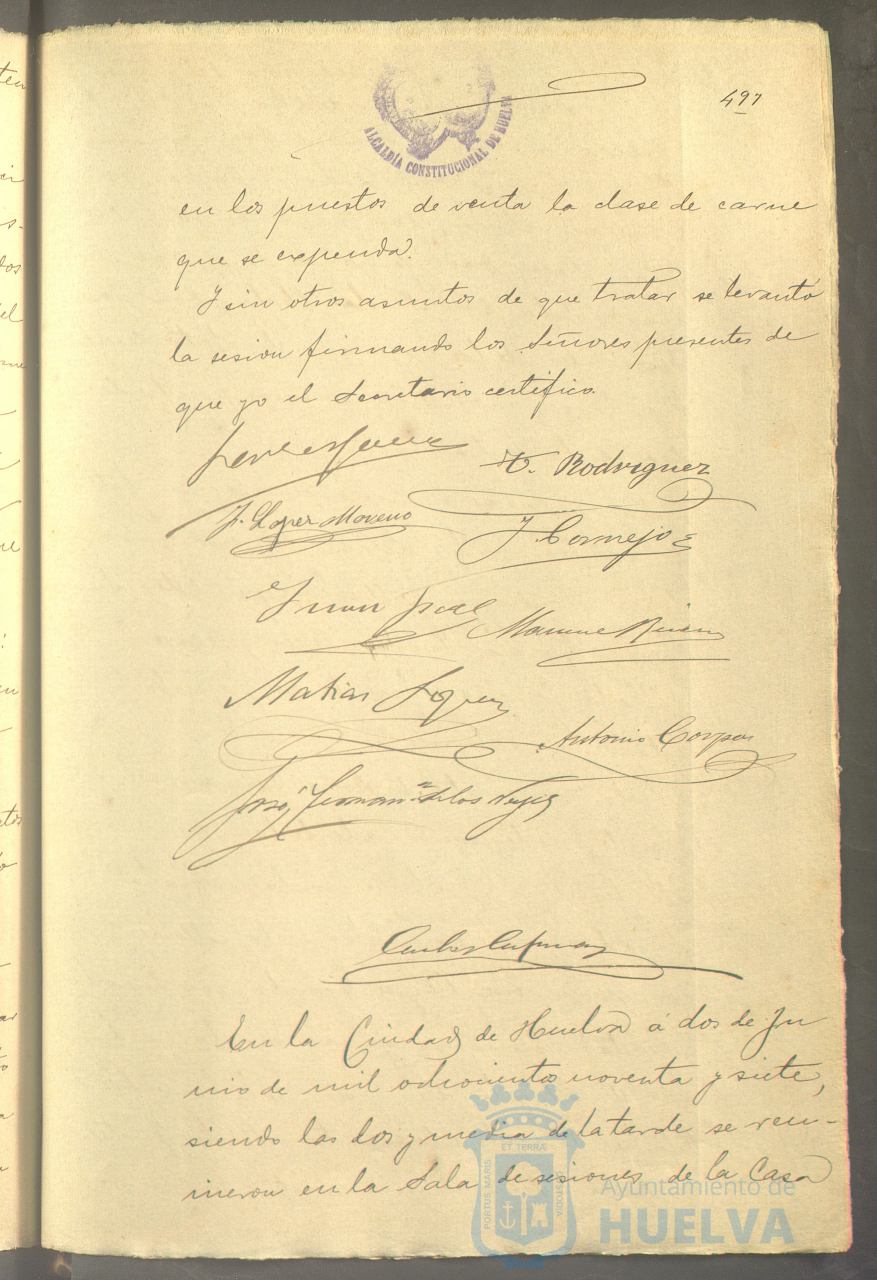 497
ALCALDÍA CONSTITUCIONAL DE HUELVA
en los puestos de venta la clase de carne
que se expenda.
Y sin otros asuntos de que tratar se levantó
la sesion firmando los Señores presentes de
que yo el Secretario certifico.
Rodriguez
J. Lopez Moreno
J. Cornejo
Juan
Manuel
Matias
Antonio Corpas
José de los Reyes
En la Ciudad de Huelva á dos de Ju
nio de mil ochociento noventa y siete,
siendo las dos y media de la tarde se reu-
nieron en la Sala de sesiones de la Casa
PORTUS MARIS ET TERRA
Ayuntamiento de
HUELVA